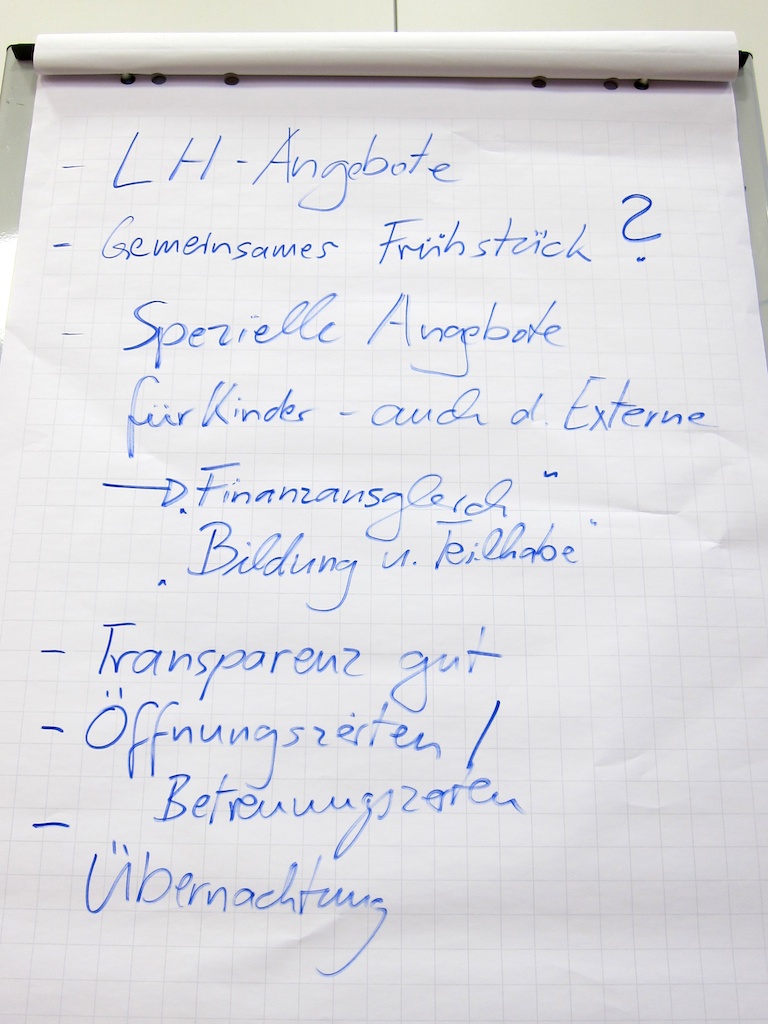 - LH - Angebote
- Gemeinsames Frühstück ?
- Spezielle Angebote
für Kinder - auch d. Externe
→ „Finanzausgleich"
„Bildung u. Teilhabe"
- Transparenz gut
- Öffnungszeiten /
Betreuungszeiten
- Übernachtung